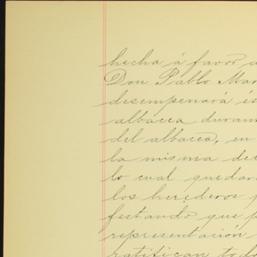 hecha á favor
Don Pablo Mar
desempenará és
albacea duran
del albacea, en
la misma de
lo cual quedar
los herederos
festando que
representación
ratifican todo